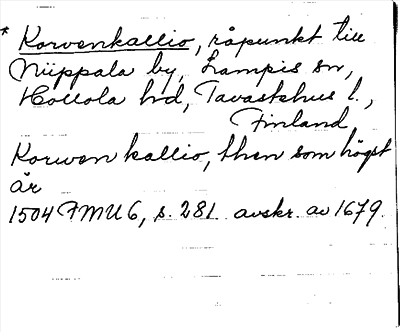 * Korvenkallio, råpunkt till
Niippala by, Lampis sn,
Hollola hd, Tavastehus l.,
Finland
Korwen kallio, then som högst
är
1504 FMU 6, s. 281 avskr. av 1679.